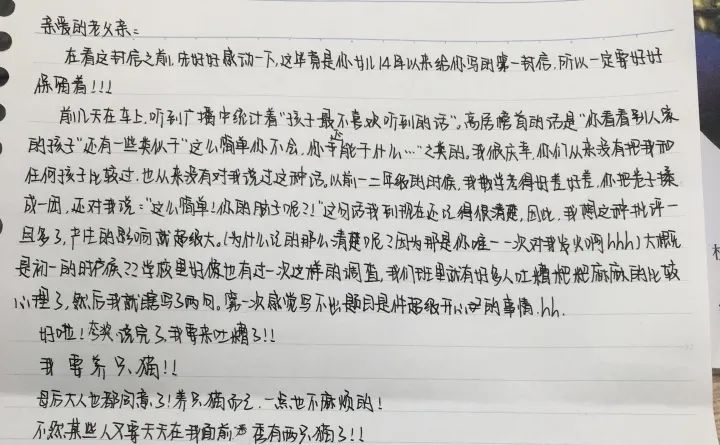 亲爱的老父亲：
在看这封信之前，先好好感动一下，这毕竟是你女儿14年以来给你写的第一封信，所以一定要好好
保留着！！！
前几天在车上，听到广播中统计着“孩子最不喜欢听到的话”。高居榜首的话是“你看看别人家
的孩子”还有一些类似于“这么简单你不会，你还能干什么…”之类的。我很庆幸，你们从来没有把我和
任何孩子比较过，也从来没有对我说过这种话。以前一二年级的时候，我数学考得好差好差，你把卷子揉
成一团，还对我说：“这么简单！你的脑子呢？！”这句话我到现在还记得很清楚，因此，我想这种批评一
旦多了，产生的影响就超级大。（为什么记的那么清楚呢？因为那是你唯一一次对我发火啊hhh）大概
是初一的时候？？学校里好像也有过一次这样的调查，我们班里就有好多人吐槽爸爸麻麻的比较
心理了，然后我就瞎写了两句。第一次感觉写不出题目是件超级开心的事情.hh.
好啦！夸奖该完了，我要来吐槽了！！
我要养只猫！！
母后大人也都同意了！养只猫而已，一点也不麻烦的！
不然某些人又要天天在我面前 有两只猫了！！